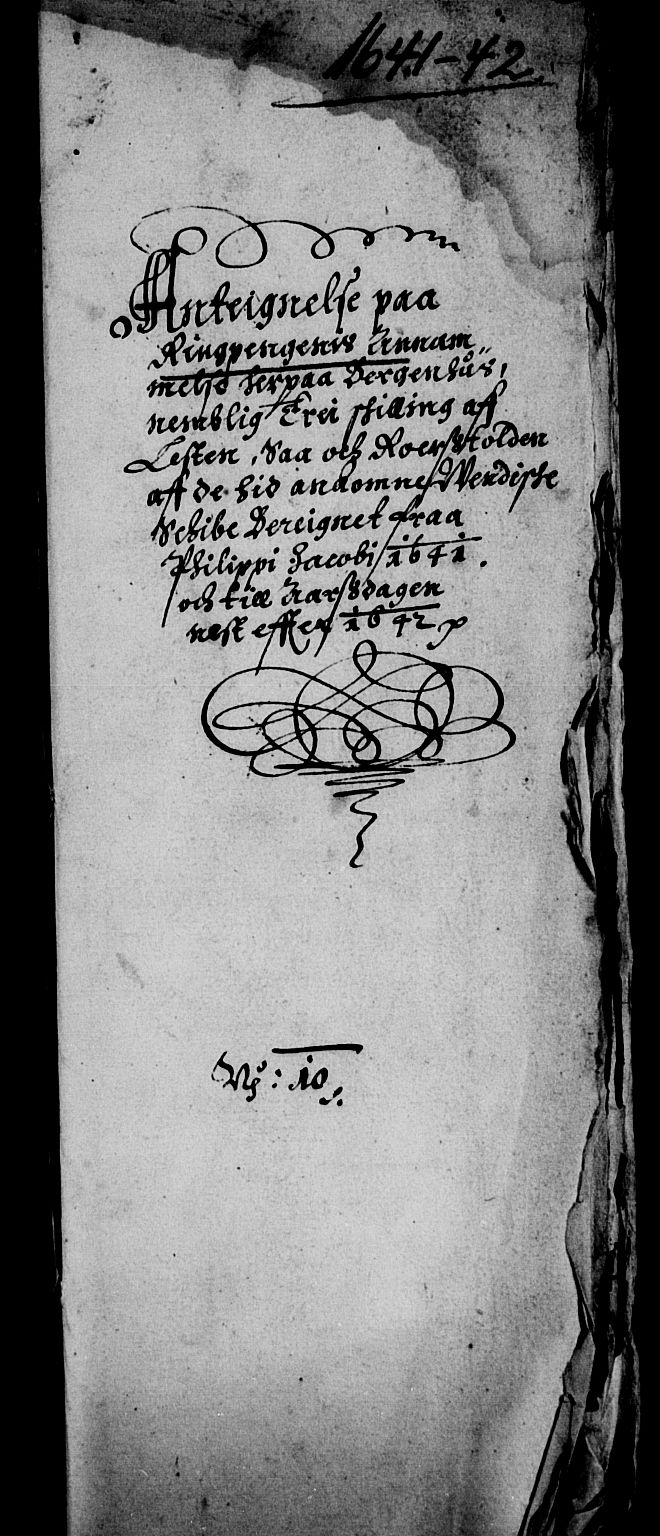 1641-42.
Anteignelse paa
Ringpengenis Annam,,
melse herpaa Bergenhus,
nemblig Trei skilling aff
Lesten, Saa och Roerstolden
aff de hid ankomne Wendiske
Schibe Bereignet fraa
Philippi Jacobi 1641.
och till Aarsdagen
nest effter 1642
No: 10